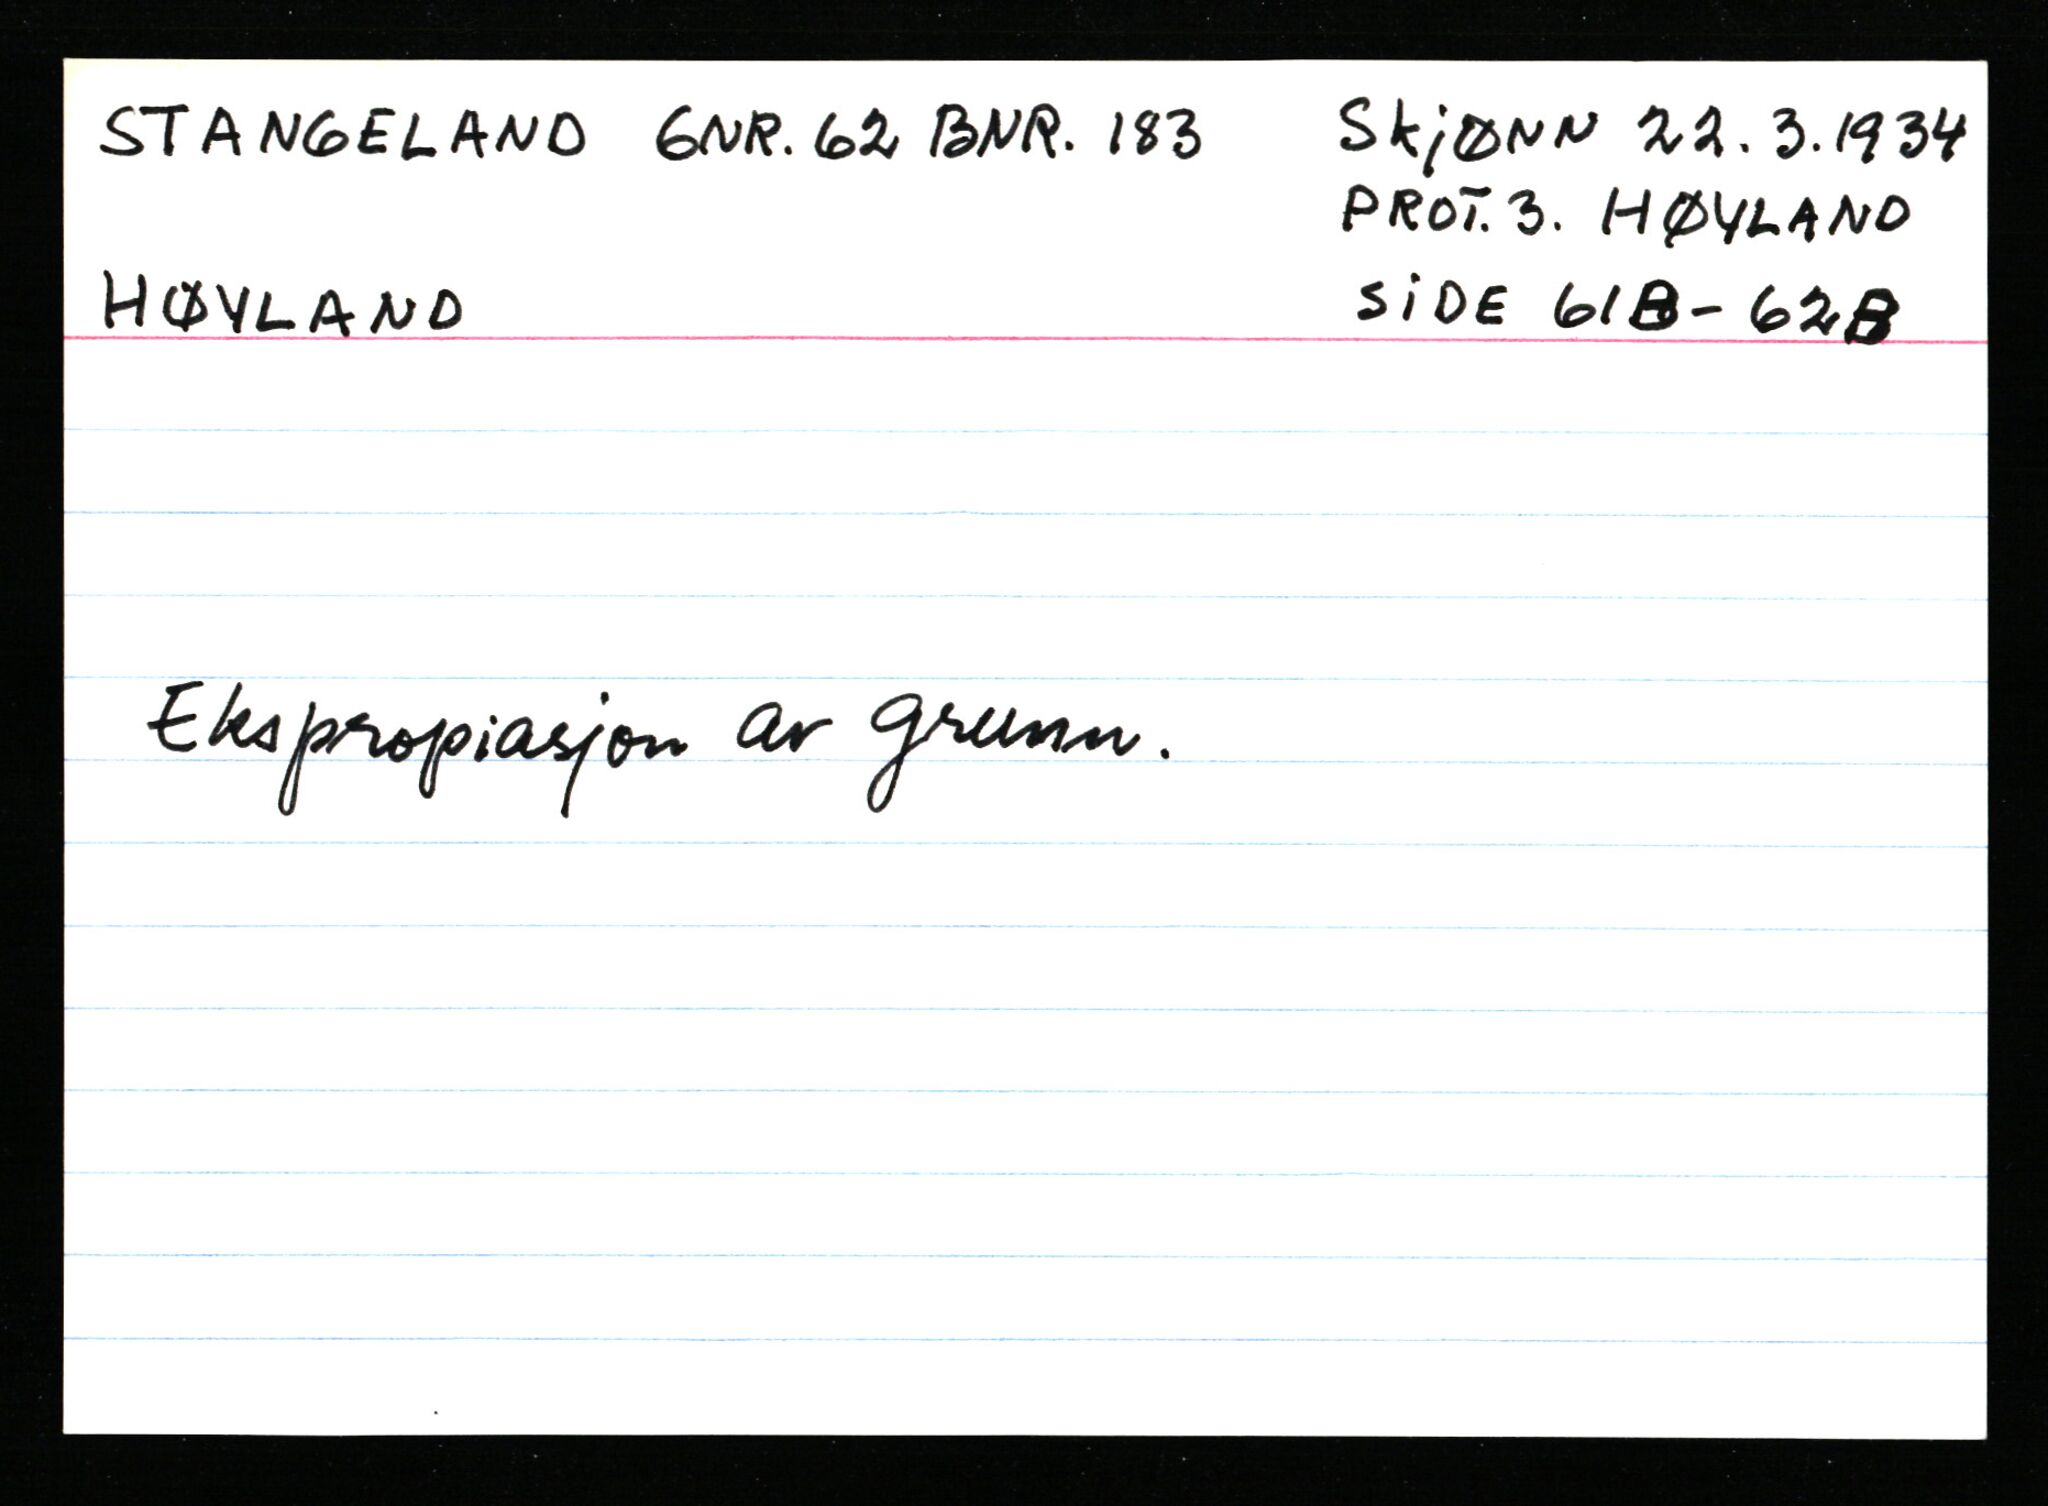 STANGELAND GNR. 62 BNR. 183
SkjØNN 22.3.1934
PROT. 3. HØYLAND
HØYLAND
SiDE 61B - 62B
Ekspropiasjon av grunn.